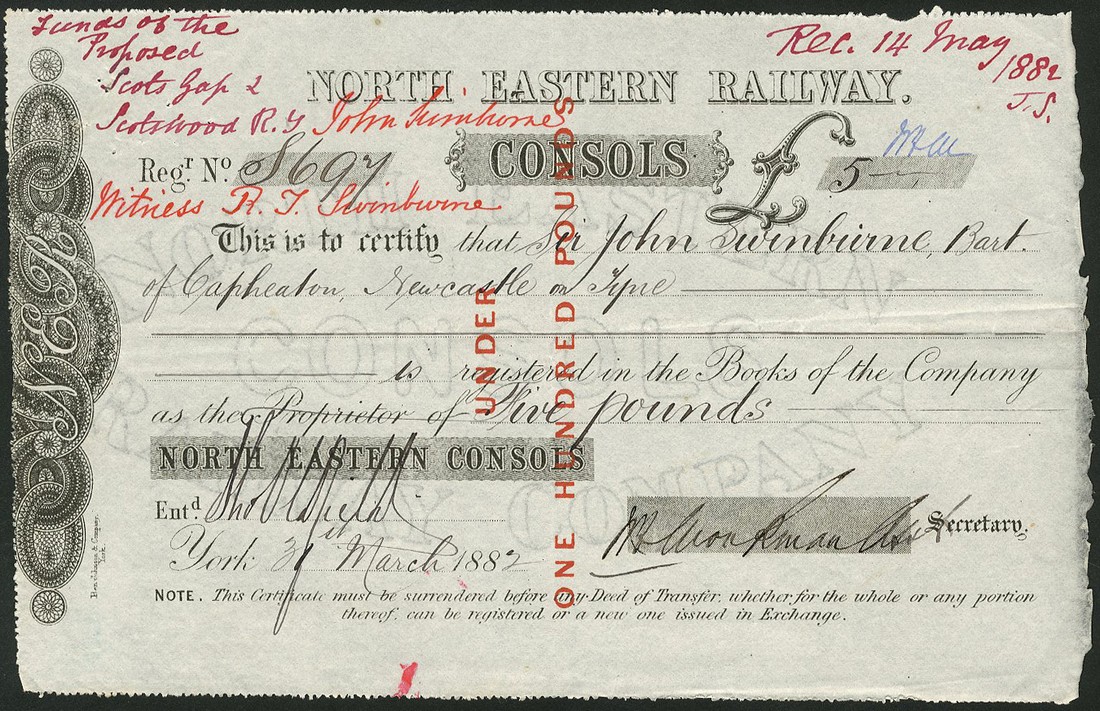 Funds of the
Proposed
Scots Gap &
Scotswood R.y
John Swinburne
Rec. 14 May
1882
J.S.
NORTH EASTERN RAILWAY.
CONSOLS
Regr. No. 8697
£ 5
Witness R. T. Swinburne
This is to certify that Sir John Swinburne, Bart.
of Capheaton, Newcastle on Tyne
is registered in the Books of the Company
as the Proprietor of Five pounds
NORTH EASTERN CONSOLS
UNDER
ONE HUNDRED POUNDS
Entd.
Secretary.
York 31st March 1882
NOTE. This Certificate must be surrendered before any Deed of Transfer, whether for the whole or any portion
thereof, can be registered or a new one issued in Exchange.
NER
Ben Johnson & Company,
York.